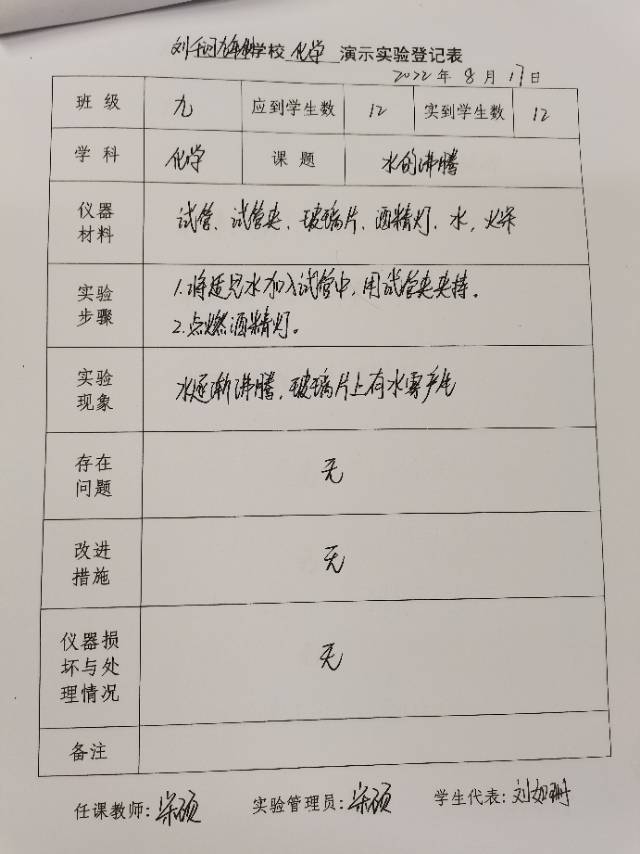 学校 化学 演示实验登记表
2022 年 8 月 17 日
班级 九 应到学生数 12 实到学生数 12
学科 化学 课题 水的沸腾
仪器 试管、试管夹、玻璃片、酒精灯、水,火柴
材料
实验 1.将适量水加入试管中,用试管夹夹持。
步骤 2.点燃酒精灯。
实验 水逐渐沸腾,玻璃片上有水雾产生
现象
存在 无
问题
改进 无
措施
仪器损
坏与处 无
理情况
备注
任课教师:梁硕 实验管理员:梁硕 学生代表:刘如珊